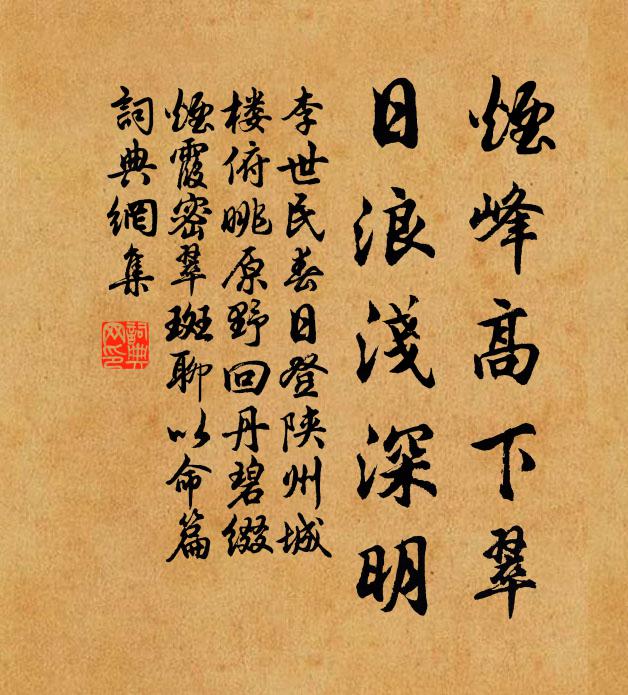 煙峰高下翠
日浪淺深明
李世民春日登陕州城
楼俯眺原野回丹碧綴
煙霞密翠斑聊以命篇
詞典網集
詞典網印